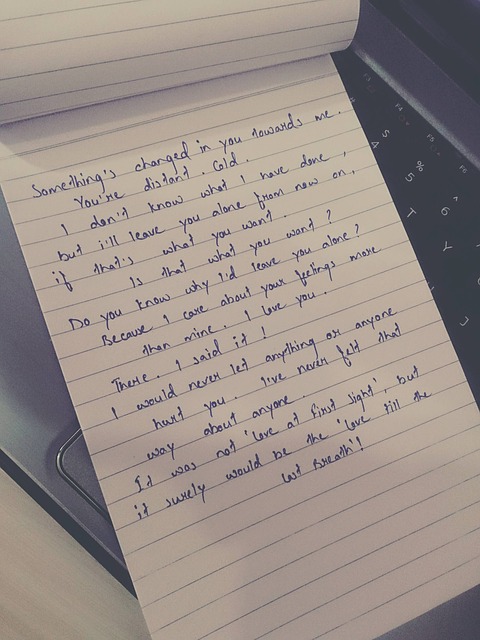 Something's changed in you towards me.
You're distant. Cold.
I don't know what I have done,
but i'll leave you alone from now on,
if that's what you want.
Is that what you want?
Do you know why I'd leave you alone?
Because I care about your feelings more
than mine. I love you.
There. I said it!
I would never let anything or anyone
hurt you. I've never felt that
way about anyone.
It was not 'love at first sight', but
it surely would be the 'love till the
last breath'!
F3
F4
F5
F6
$
4
%
5
^
6
T
Y
J